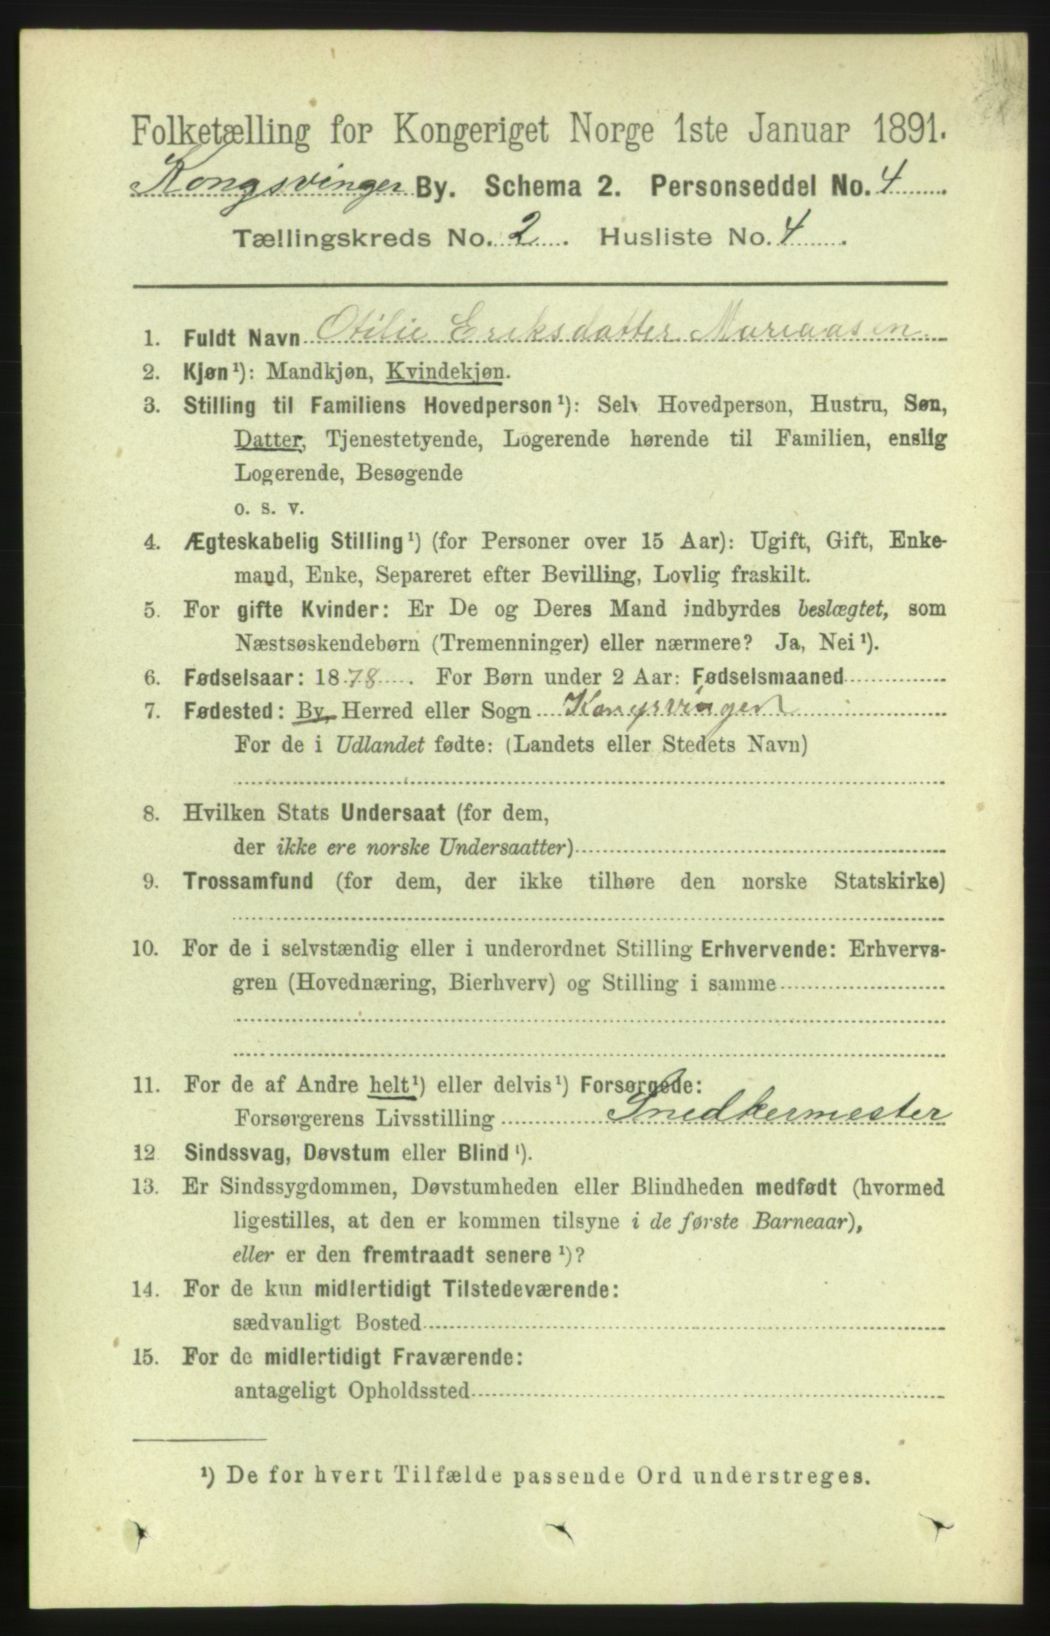 Folketælling for Kongeriget Norge 1ste Januar 1891.
Kongsvinger By. Schema 2. Personseddel No. 4
Tællingskreds No. 2. Husliste No. 4.
1. Fuldt Navn Otilie Eriksdatter
2. Kjøn¹): Mandkjøn, Kvindekjøn.
3. Stilling til Familiens Hovedperson¹): Selv Hovedperson, Hustru, Søn,
Datter, Tjenestetyende, Logerende hørende til Familien, enslig
Logerende, Besøgende
o. s. v.
4. Ægteskabelig Stilling¹) (for Personer over 15 Aar): Ugift, Gift, Enke-
mand, Enke, Separeret efter Bevilling, Lovlig fraskilt.
5. For gifte Kvinder: Er De og Deres Mand indbyrdes beslægtet, som
Næstsøskendebørn (Tremenninger) eller nærmere? Ja, Nei¹).
6. Fødselsaar: 1878. For Børn under 2 Aar: Fødselsmaaned
7. Fødested: By, Herred eller Sogn Kongsvinger
For de i Udlandet fødte: (Landets eller Stedets Navn)
8. Hvilken Stats Undersaat (for dem,
der ikke ere norske Undersaatter)
9. Trossamfund (for dem, der ikke tilhøre den norske Statskirke)
10. For de i selvstændig eller i underordnet Stilling Erhvervende: Erhvervs-
gren (Hovednæring, Bierhverv) og Stilling i samme
11. For de af Andre helt¹) eller delvis¹) Forsørgede:
Forsørgerens Livsstilling Snedkermester
12 Sindssvag, Døvstum eller Blind¹).
13. Er Sindssygdommen, Døvstumheden eller Blindheden medfødt (hvormed
ligestilles, at den er kommen tilsyne i de første Barneaar),
eller er den fremtraadt senere¹)?
14. For de kun midlertidigt Tilstedeværende:
sædvanligt Bosted
15. For de midlertidigt Fraværende:
antageligt Opholdssted
¹) De for hvert Tilfælde passende Ord understreges.